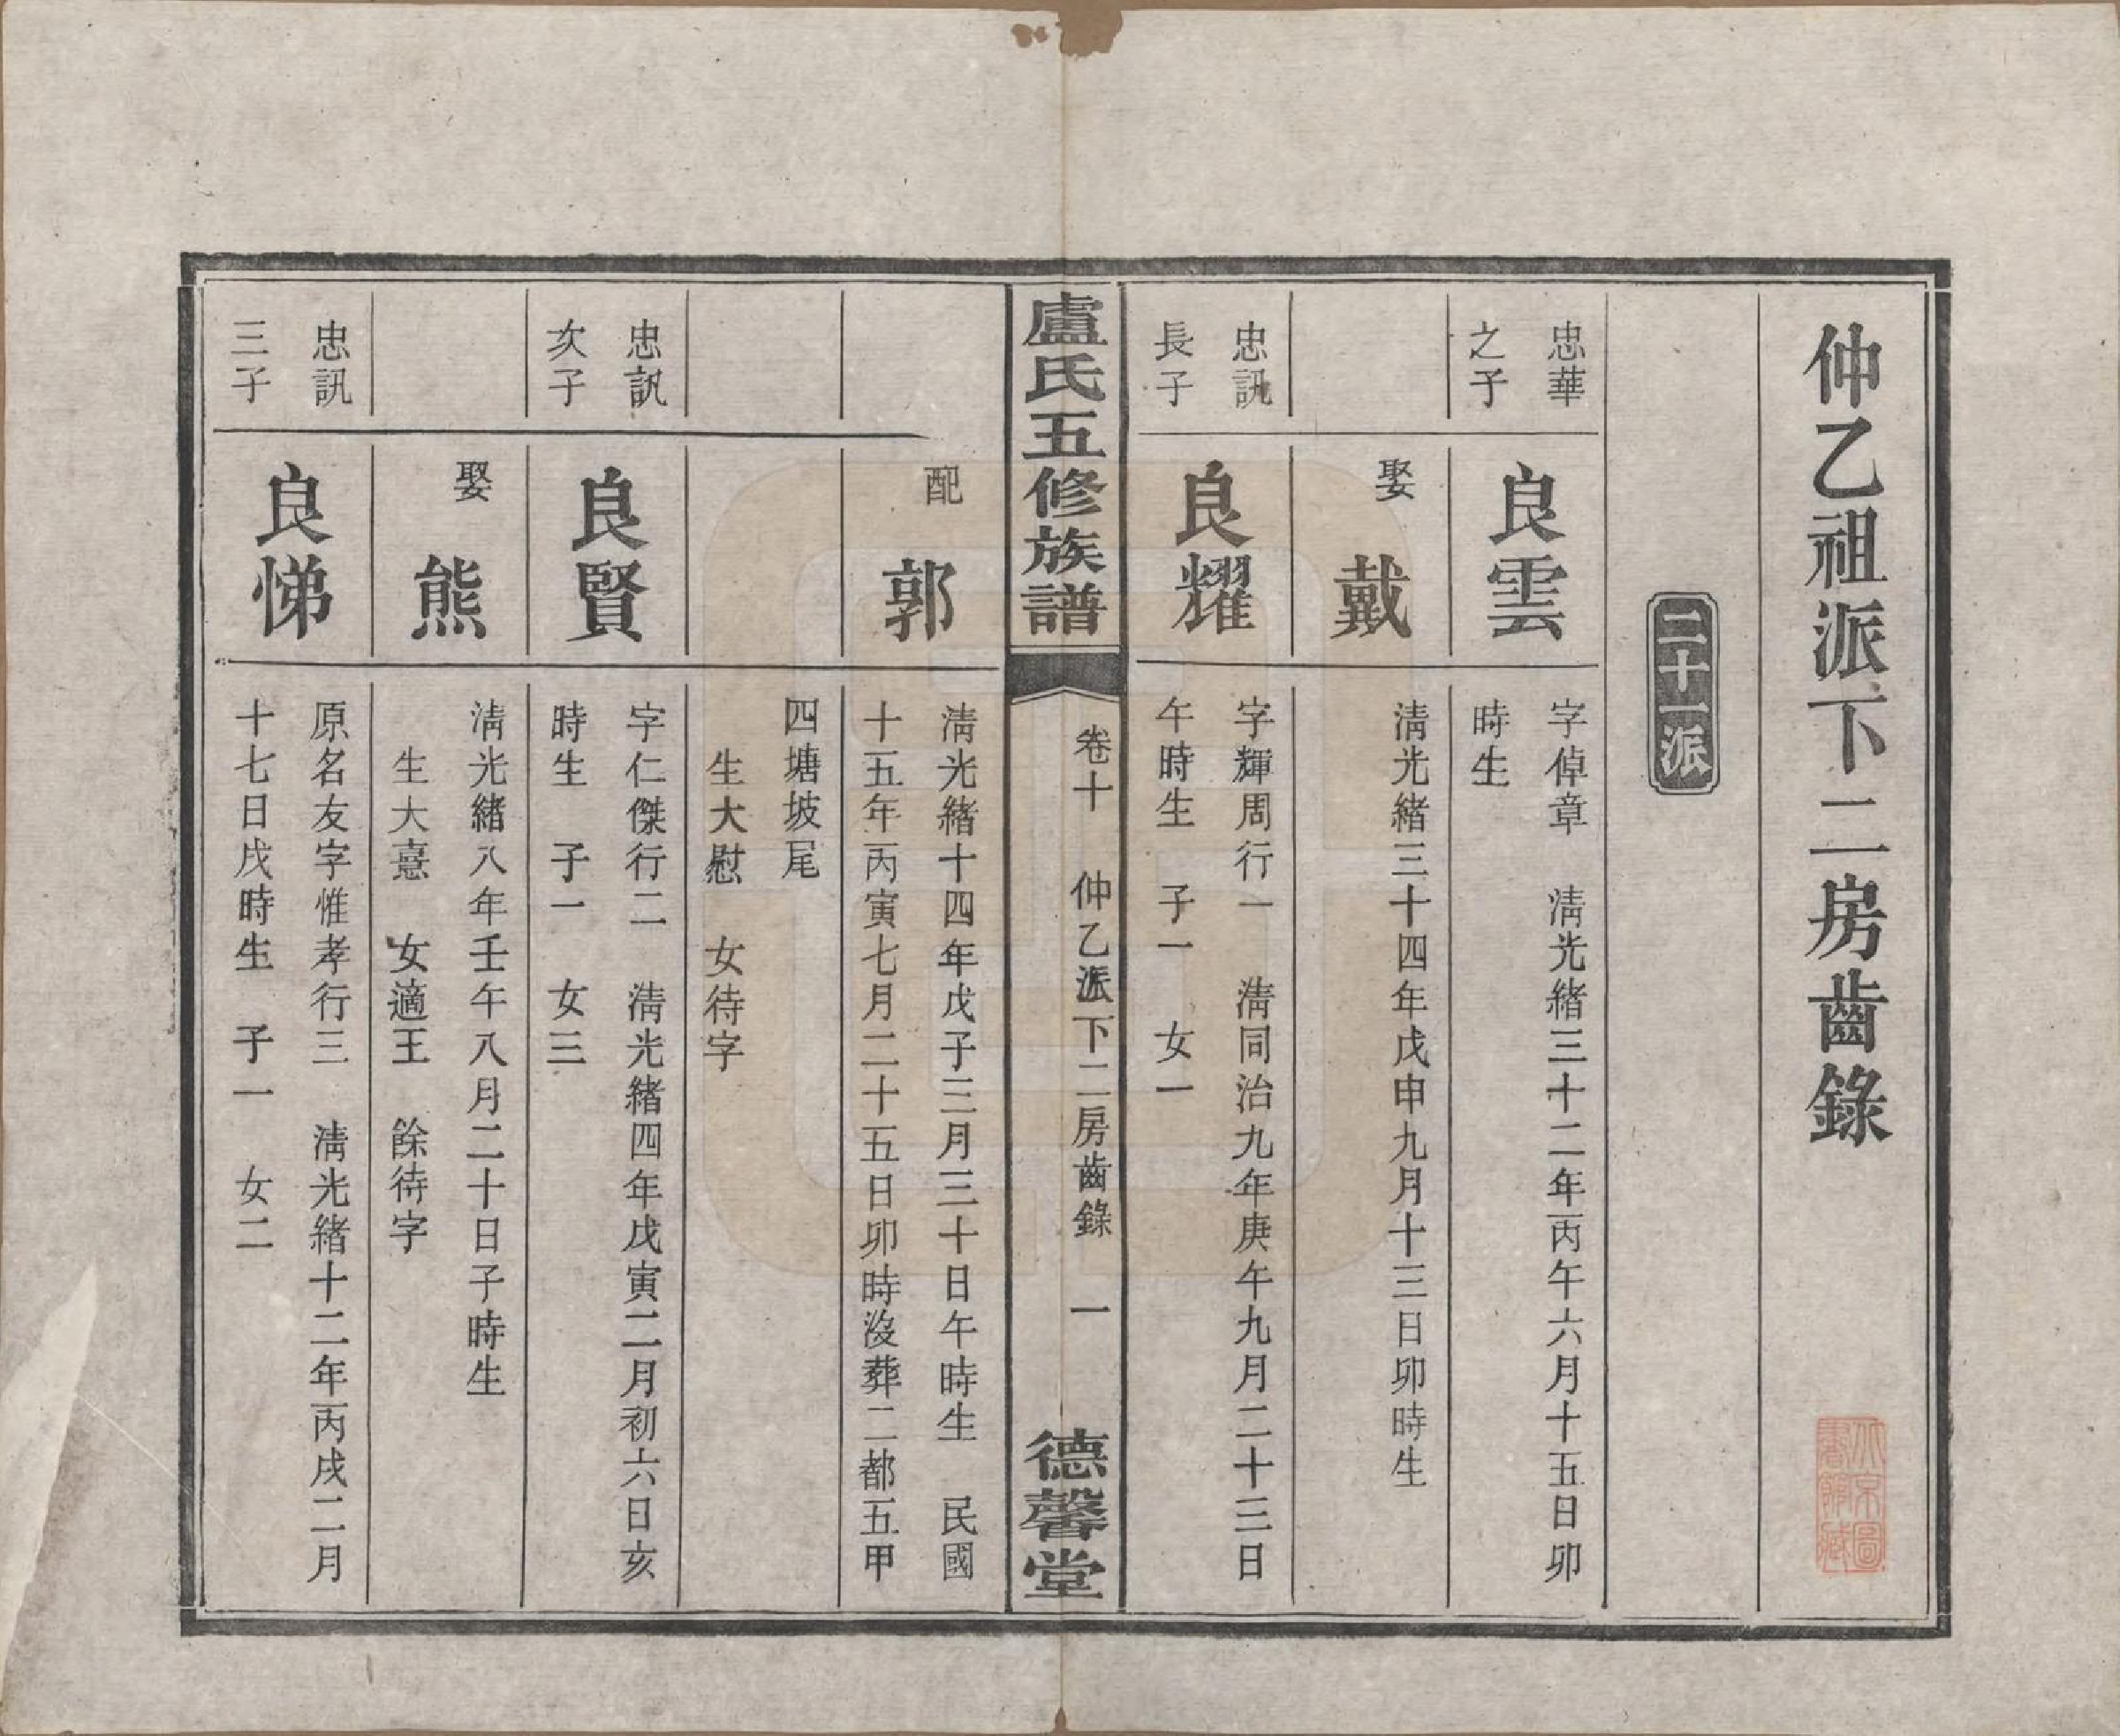 仲乙祖派下二房齒錄
二十一派
忠華
之子
良雲
字倬章　清光緒三十二年丙午六月十五日卯
時生
娶
戴
清光緒三十四年戊申九月十三日卯時生
忠訊
長子
良耀
字輝周行一　清同治九年庚午九月二十三日
午時生　子一　女一
盧氏五修族譜
卷十　仲乙派下二房齒錄　一
德馨堂
配
郭
清光緒十四年戊子三月三十日午時生　民國
十五年丙寅七月二十五日卯時沒葬二都五甲
四塘坡尾
生大慰　女待字
忠訊
次子
良賢
字仁傑行二　清光緒四年戊寅二月初六日亥
時生　子一　女三
娶
熊
清光緒八年壬午八月二十日子時生
生大憙　女適王　餘待字
忠訊
三子
良悌
原名友字惟孝行三　清光緒十二年丙戌二月
十七日戌時生　子一　女二